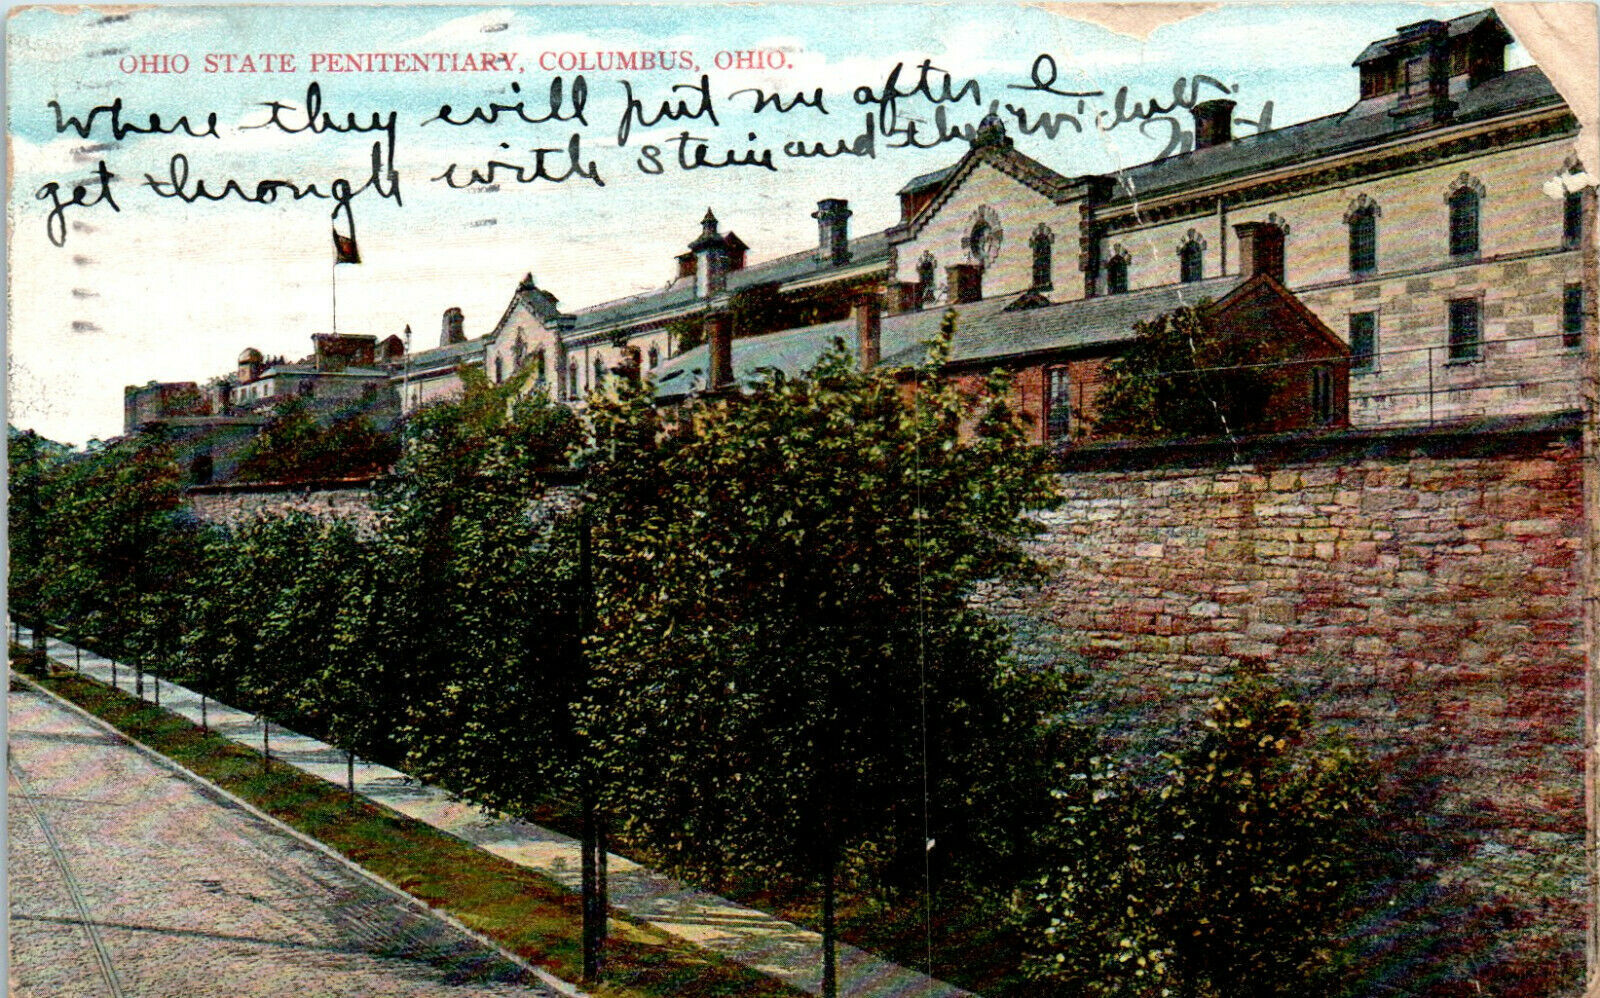 OHIO STATE PENITENTIARY, COLUMBUS, OHIO.
Where they will put me after I
get through with Stein and the widow